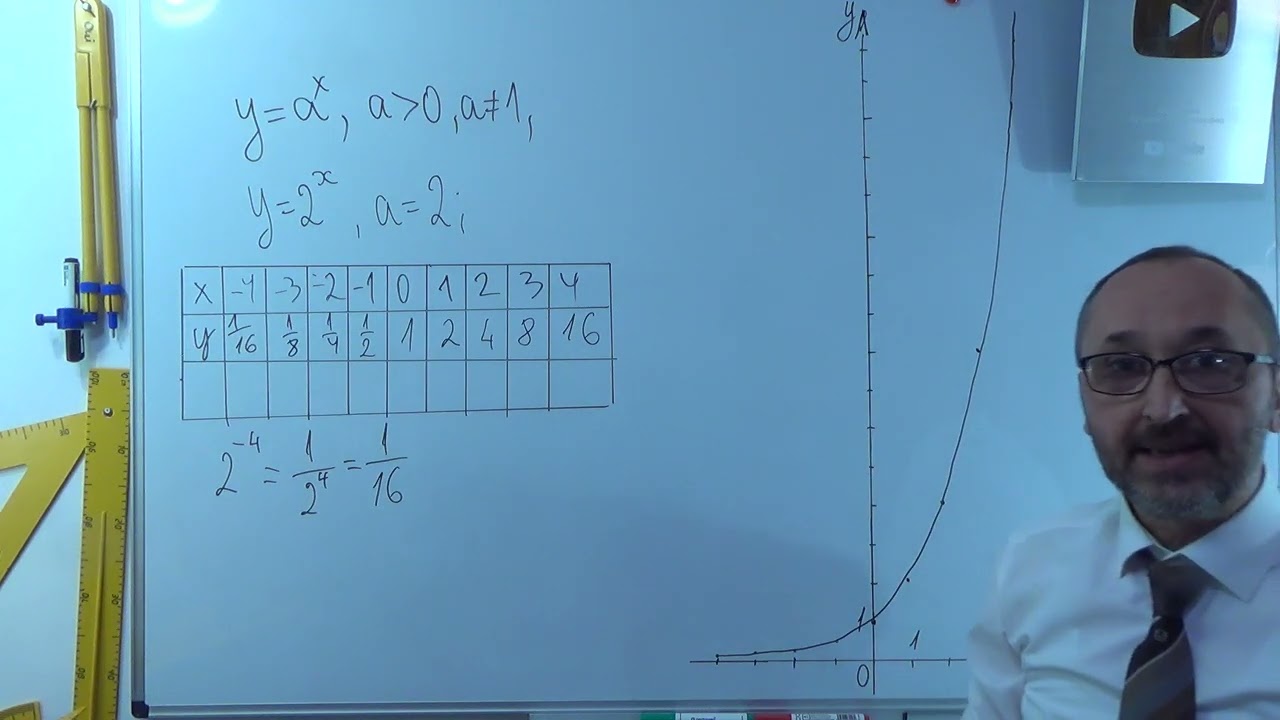 y=aˣ, a>0, a≠1,
y=2ˣ, a=2;
x -4 -3 -2 -1 0 1 2 3 4
y 1/16 1/8 1/4 1/2 1 2 4 8 16
2⁻⁴ = 1/2⁴ = 1/16
y
1
1
0